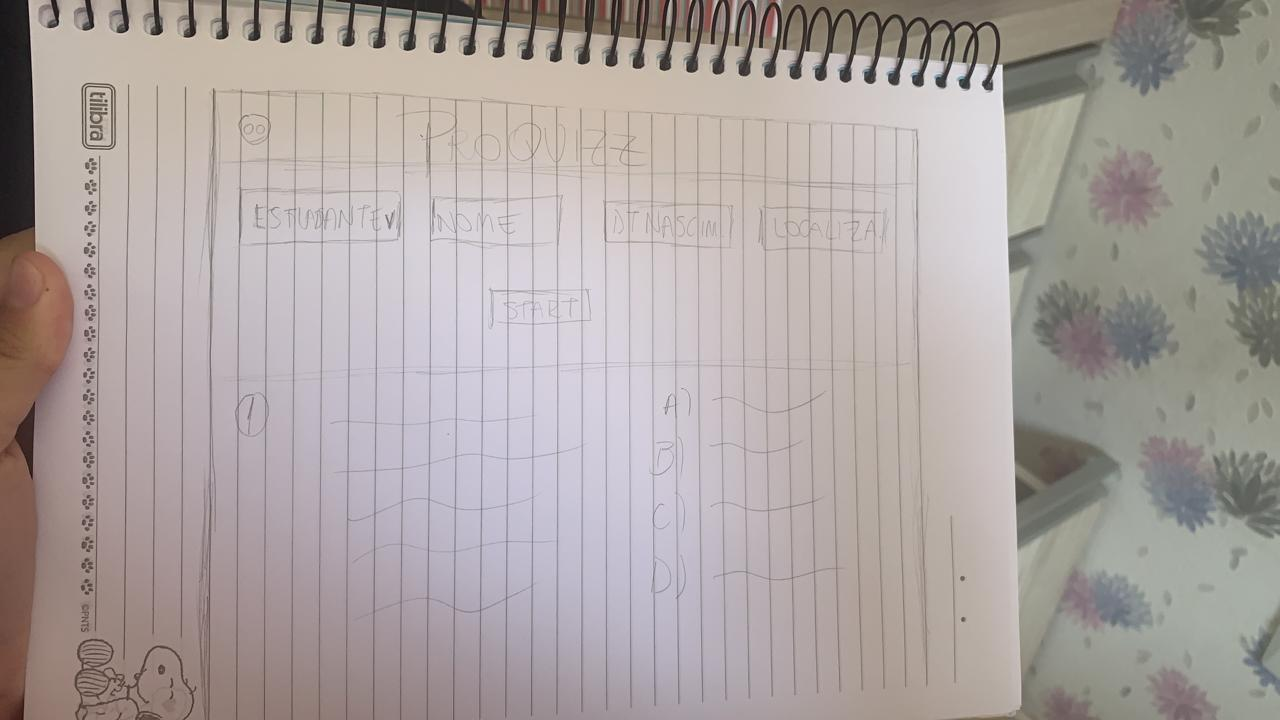 tilibra
PROQUIZZ
ESTUDANTE V
NOME
DT NASCIM.
LOCALIZA.
START
1
A)
B)
C)
D)
©PNTS